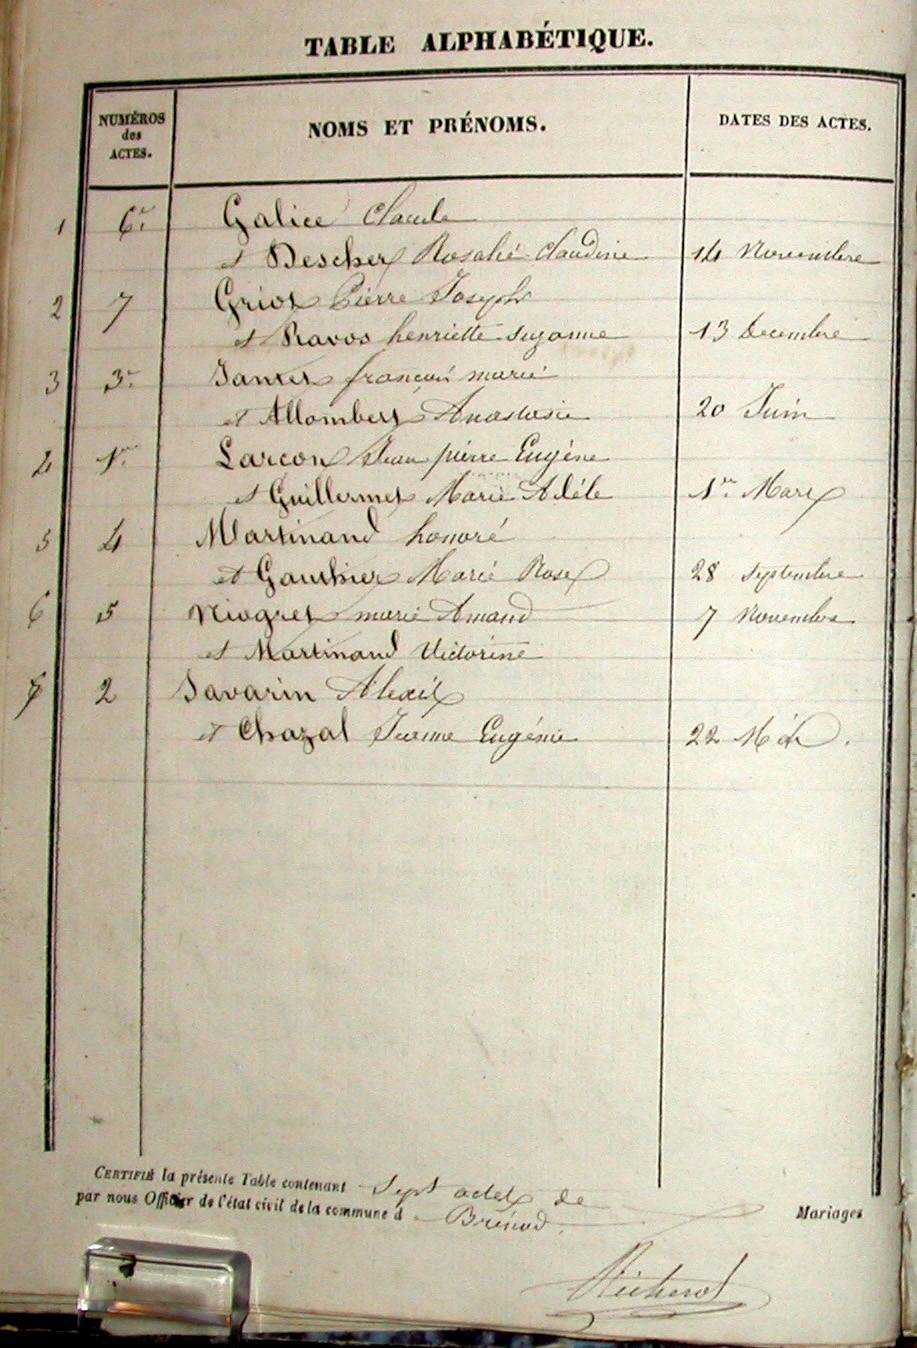 TABLE ALPHABÉTIQUE.
NUMÉROS des ACTES. NOMS ET PRÉNOMS. DATES DES ACTES.
1 6e. Galice Claude
et Descher Rosalie Claudine 14 Novembre
2 7 Griot Pierre Joseph
et Ravos henriette Suzanne 13 Decembre
3 3e. francois marie
et Allombert Anastasie 20 Juin
4 1er. Larcon Jean pierre Eugène
et Guillermet Marie Adèle 1er. Mars
5 4 Martinand honoré
et Gauthier Marie Rose 28 Septembre
6 5 Niogret marie Amand 7 Novembre
et Martinand Victorine
7 2 Savarin Alexis
et Chazal Jeanne Eugénie 22 Mai.
CERTIFIÉ la présente Table contenant Sept actes de Mariages
par nous Officier de l'état civil de la commune d Brénod.